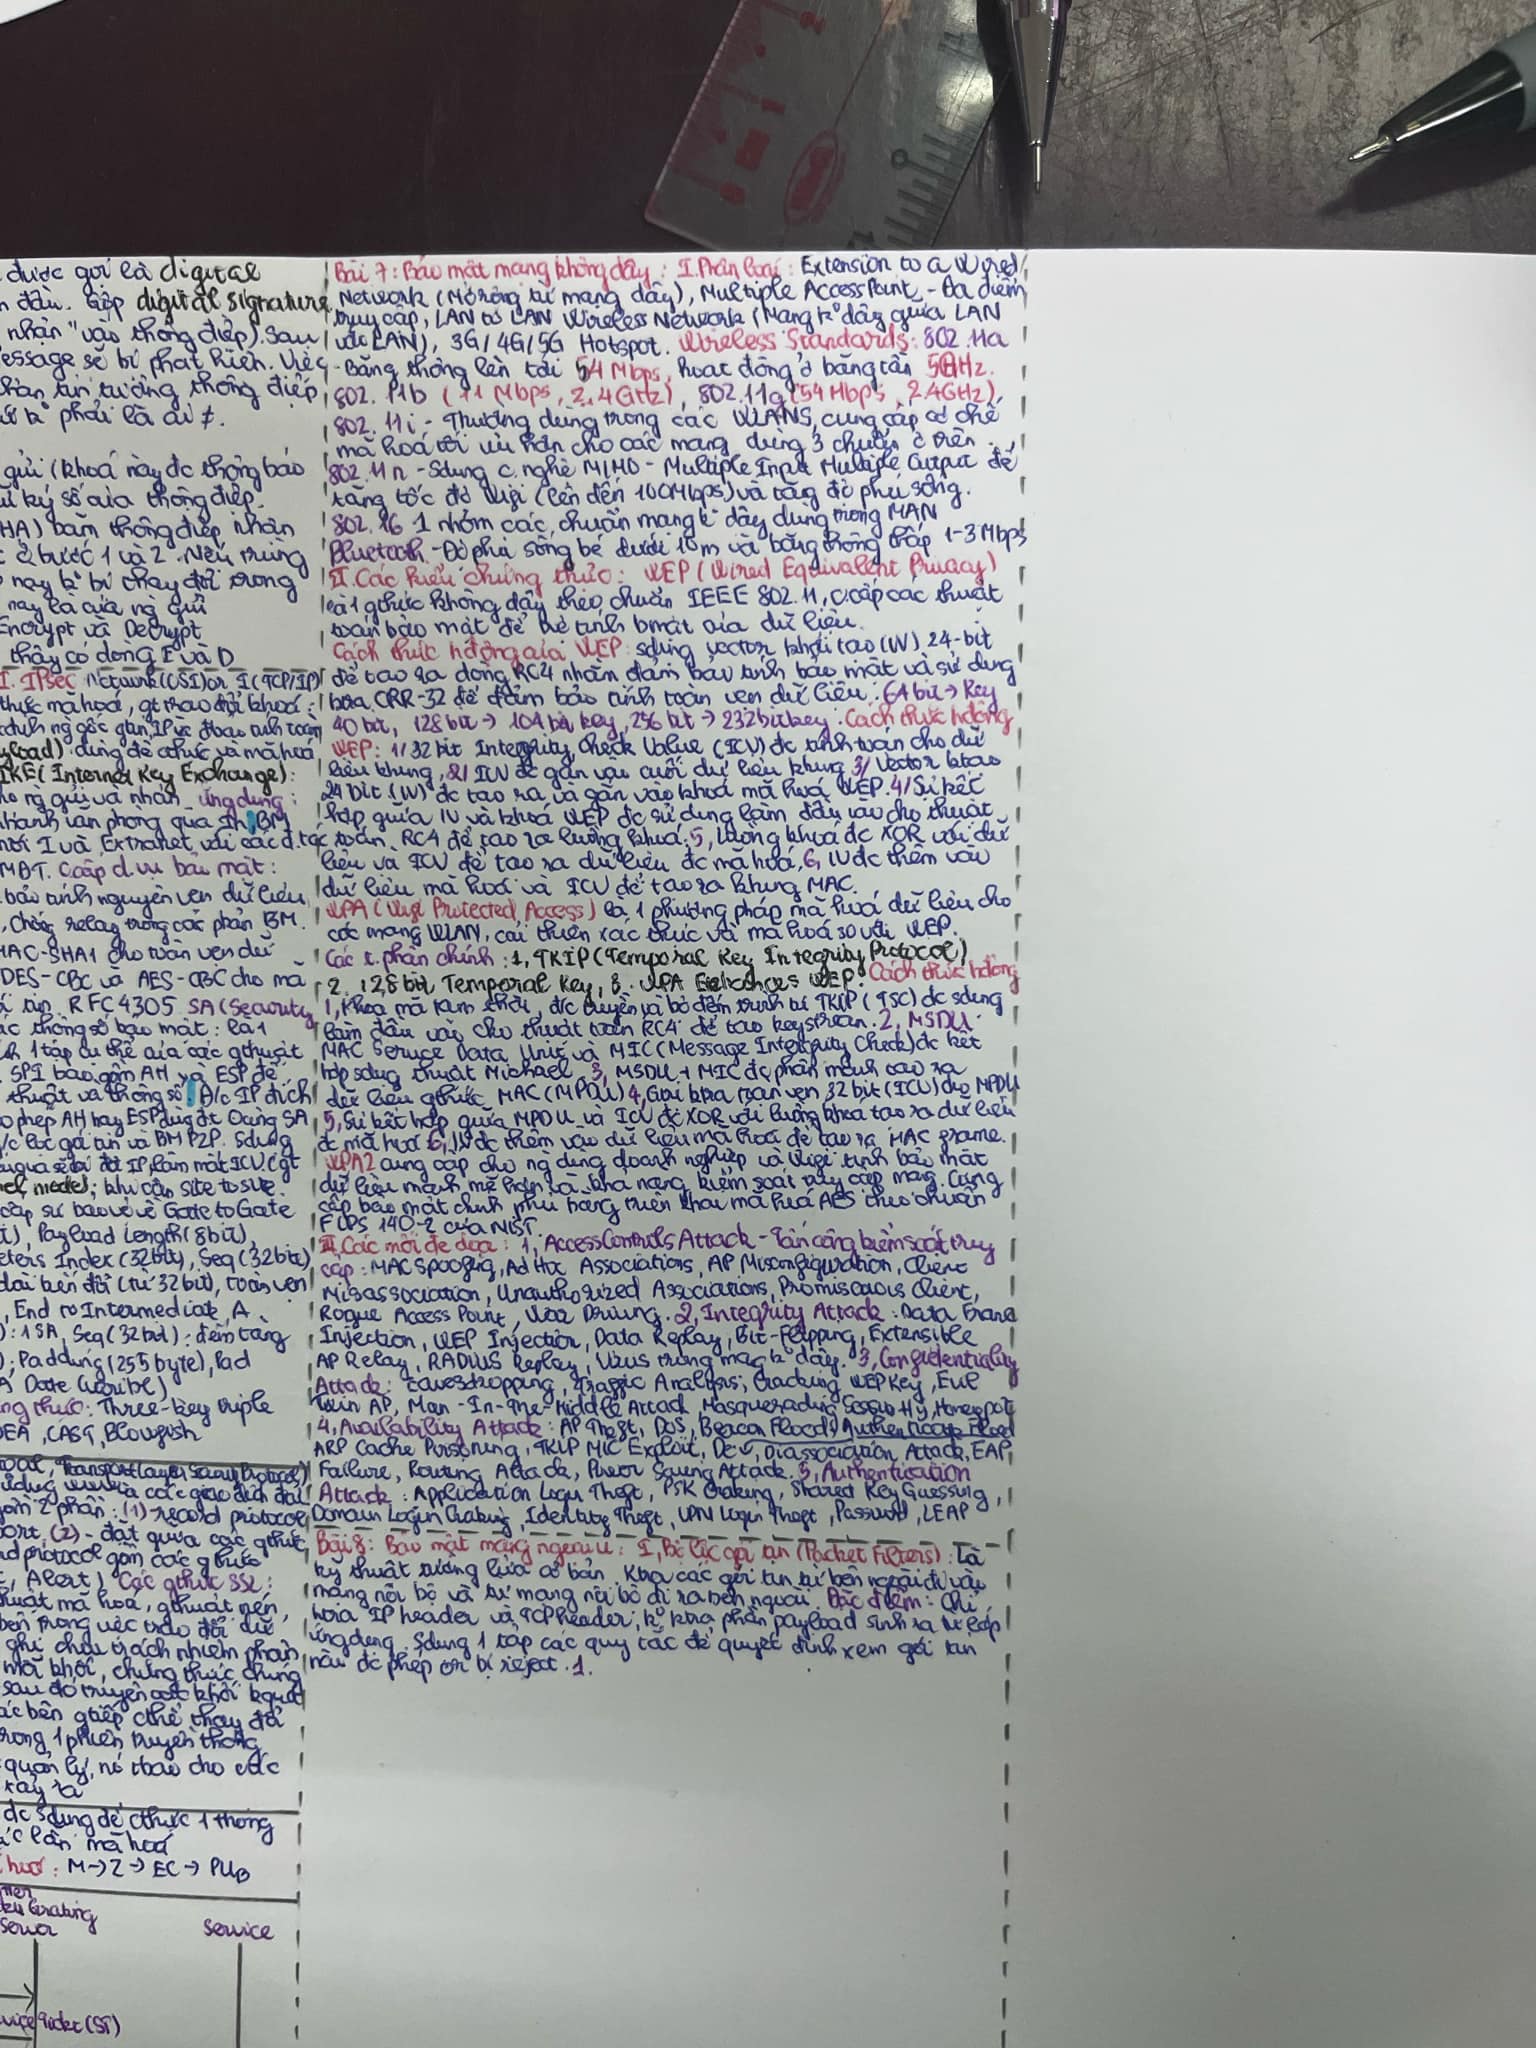 được gọi là digital
n đầu. Gộp digital signature
nhận" vào thông điệp). Sau
essage sẽ bị phát hiện. Việc
nhận tin tưởng thông điệp
k° phải là ai ≠.
gửi (khoá này đc thông báo
ký số của thông điệp.
HA) băm thông điệp nhận
ở bước 1 và 2. Nếu trùng
nay k° bị thay đổi trong
nay là của ng gửi
Encrypt và Decrypt
thấy có dòng E và D
I. IPsec Network(OSI) or I(TCP/IP)
thực mã hoá, gt trao đổi khoá:
load) dùng để cthực và mã hoá
IKE (Internet Key Exchange):
ho ng gửi và nhận ứng dụng:
nhánh văn phòng qua Int, BM
nối I và Extranet với các đ.tác
MĐT. Cấp d.vụ bảo mật:
bảo tính nguyên vẹn dữ liệu
, Chống relay trong các phần BM.
HAC-SHA1 cho toàn vẹn dữ
DES-CBC và AES-CBC cho mã
RFC 4305 SA (Security
ác thông số bảo mật: là 1
1 tập cụ thể của các gthuật
SPI bao gồm AH và ESP để
thuật và thông số, Đ/c IP đích
phép AH hay ESP
/c lọc gói tin và BM P2P. Sdụng
model: khi cần site to site.
cấp sự bảo vệ về Gate to Gate
), Payload Length (8bit),
eters Index (32bit), Seq (32bit)
dài biến đổi (từ 32bit), toàn vẹn
, End to Intermediate, A
): 1SA, Seq (32bit): đếm tăng
); Padding (255 byte), Pad
A Date (
ng thực: Three-key triple
DEA, CAST, Blowfish
Transport Layer Security Protocol)
gồm 2 phần: (1) record protocol
ort, (2) - đặt giữa các gthức
nd protocol gồm các gthức
, Alert) Các gthức SSL:
huật mã hoá, gthuật nén,
bên trong việc trao đổi dữ
ghi chịu trách nhiệm phân
mỗi khối, chứng thực chúng
sau đó truyền các khối kquả
ác bên gtiếp cthể thay đổi
trong 1 phiên truyền thông
quản lý, nó tbáo cho các
xảy ra
đc sdụng để cthực 1 thông
ác lần mã hoá
M → Z → EC → PUB
Server
Service
vice Ticket (ST)
Bài 7: Bảo mật mạng không dây: I. Phân loại: Extension to a Wired
Network (Mở rộng từ mạng dây), Multiple Access Point - Đa điểm
truy cập, LAN to LAN Wireless Network (Mạng k° dây giữa LAN
với LAN), 3G/4G/5G Hotspot. Wireless Standards: 802.11a
- Băng thông lên tới 54 Mbps, hoạt động ở băng tần 5GHz.
802.11b (11 Mbps, 2.4GHz), 802.11g (54 Mbps, 2.4GHz)
802.11i - Thường dùng trong các WLANS, cung cấp cơ chế
mã hoá tối ưu hơn cho các mạng dùng 3 chuẩn ở trên.
802.11n - Sdụng c.nghệ MIMO - Multiple Input Multiple Output để
tăng tốc độ Wifi (lên đến 100Mbps) và tăng độ phủ sóng.
802.16 1 nhóm các chuẩn mạng k° dây dùng trong MAN
Bluetooth - Độ phủ sóng bé dưới 10m và băng thông thấp 1-3 Mbps
II. Các kiểu chứng thực: WEP (Wired Equivalent Privacy)
là 1 gthức không dây theo chuẩn IEEE 802.11, c.cấp các thuật
toán bảo mật để tính bmật của dữ liệu.
Cách thức hđộng của WEP: sdụng vector khởi tạo (IV) 24-bit
để tạo ra dòng RC4 nhằm đảm bảo tính bảo mật và sử dụng
ktra CRR-32 để đảm bảo tính toàn vẹn dữ liệu: 64 bit → Key
40 bit, 128 bit → 104 bit key, 256 bit → 232 bit key. Cách thức hđộng
WEP: 1/ 32 bit Integrity Check Value (ICV) đc tính toán cho dữ
liệu khung, 2/ ICV đc gắn vào cuối dữ liệu khung 3/ Vector ktạo
24 bit (IV) đc tạo ra và gắn vào khoá mã hoá WEP. 4/ Sự kết
hợp giữa IV và khoá WEP đc sử dụng làm đầu vào cho thuật
toán RC4 để tạo ra luồng khoá. 5, Luồng khoá đc XOR với dữ
liệu và ICV để tạo ra dữ liệu đc mã hoá, 6, IV đc thêm vào
dữ liệu mã hoá và ICV để tạo ra khung MAC.
WPA (Wifi Protected Access) là 1 phương pháp mã hoá dữ liệu cho
các mạng WLAN, cải thiện xác thực và mã hoá so với WEP.
Các t.phần chính: 1, TKIP (Temporal Key Integrity Protocol)
2. 128 bit Temporal Key, 3. WPA Enhances WEP. Cách thức hđộng
1, Khoá mã tạm thời, đ/c truyền và bộ đếm trình tự TKIP (TSC) đc sdụng
làm đầu vào cho thuật toán RC4 để tạo keystream. 2, MSDU -
MAC Service Data Unit và MIC (Message Intergrity Check) đc kết
hợp sdụng thuật Michael 3, MSDU + MIC đc phân mảnh tạo ra
dữ liệu gthức MAC (MPDU) 4, Giá trị ktra toàn vẹn 32 bit (ICV) cho MPDU
5, Sự kết hợp giữa MPDU và ICV đc XOR với luồng khoá tạo ra dữ liệu
đc mã hoá 6, IV đc thêm vào dữ liệu mã hoá để tạo ra MAC frame.
WPA2 cung cấp cho ng dùng doanh nghiệp và Wifi tính bảo mật
dữ liệu mạnh mẽ hơn và khả năng kiểm soát truy cập mạng. Cung
cấp bảo mật chính phủ bằng triển khai mã hoá AES theo chuẩn
FIPS 140-2 của NIST.
III. Các mối đe doạ: 1, Access Controls Attack - Tấn công kiểm soát truy
cập: MAC Spoofing, Ad Hoc Associations, AP Misconfiguration, Client
Misassociation, Unauthorized Associations, Promiscuous Client,
Rogue Access Point, War Driving. 2, Integrity Attack: Data Frame
Injection, WEP Injection, Data Replay, Bit-Flipping, Extensible
AP Relay, RADIUS Replay, Virus trong mạng k° dây. 3, Confidentiality
Attack: Eavesdropping, Traffic Analysis, Cracking WEP Key, Evil
Twin AP, Man-In-The-Middle Attack, Masquerading, Session Hj, Honeypot
4, Availability Attack: AP Theft, DOS, Beacon Flood, Authenticate Flood
ARP Cache Poisoning, TKIP MIC Exploit, De , Diassociation Attack, EAP
Failure, Routing Attack, Power Saving Attack. 5, Authentication
Attack: Application Login Theft, PSK Craking, Shared Key Guessing,
Domain Login Craking, Identity Theft, VPN Login Theft, Password, LEAP
Bài 8: Bảo mật mạng ngoại vi: I, Bộ lọc gói tin (Packet Filters): Là
kỹ thuật tường lửa cơ bản. Ktra các gói tin từ bên ngoài đi vào
mạng nội bộ và từ mạng nội bộ đi ra bên ngoài. Đặc điểm: Chỉ
ktra IP header và TCP header; k° ktra phần payload sinh ra từ lớp
ứng dụng. Sdụng 1 tập các quy tắc để quyết định xem gói tin
nào đc phép or bị reject. 1.